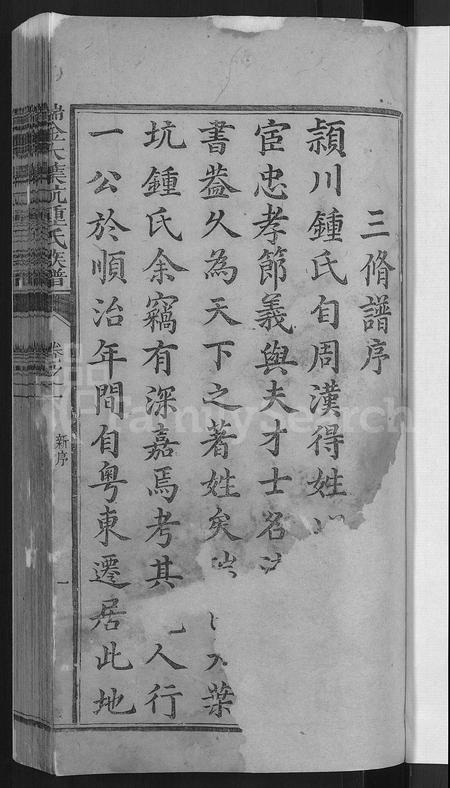 三脩譜序
頴川鍾氏自周漢得姓
宦忠孝節義與夫才士名
書葢久為天下之著姓矣 葉
坑鍾氏余竊有深嘉焉考其 人行
一公於順治年間自粤東遷居此地
瑞金大葉坑鍾氏族譜 卷之一 新序 一
FamilySearch